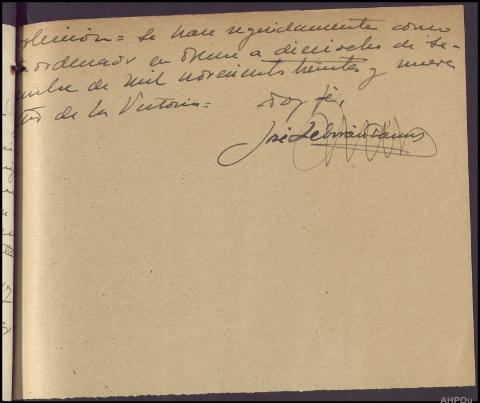 olución = Se hace seguidamente como
ordenado en Orense a dieciocho de Se-
embre de mil novecientos treinta y nueve
Año de la Victoria =
Doy fe,
José
AHPOu